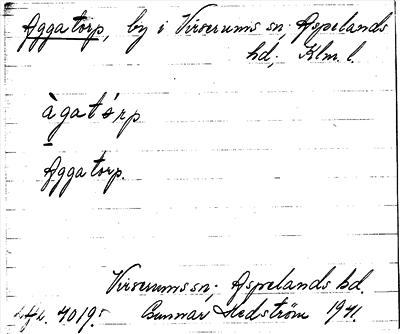 Aggatorp, by i Virserums sn; Aspelands
hd; Klm. l.
àgatårp
Aggatorp.
Virserums sn; Aspelands hd.
4019. Gunnar Hedström 1941.